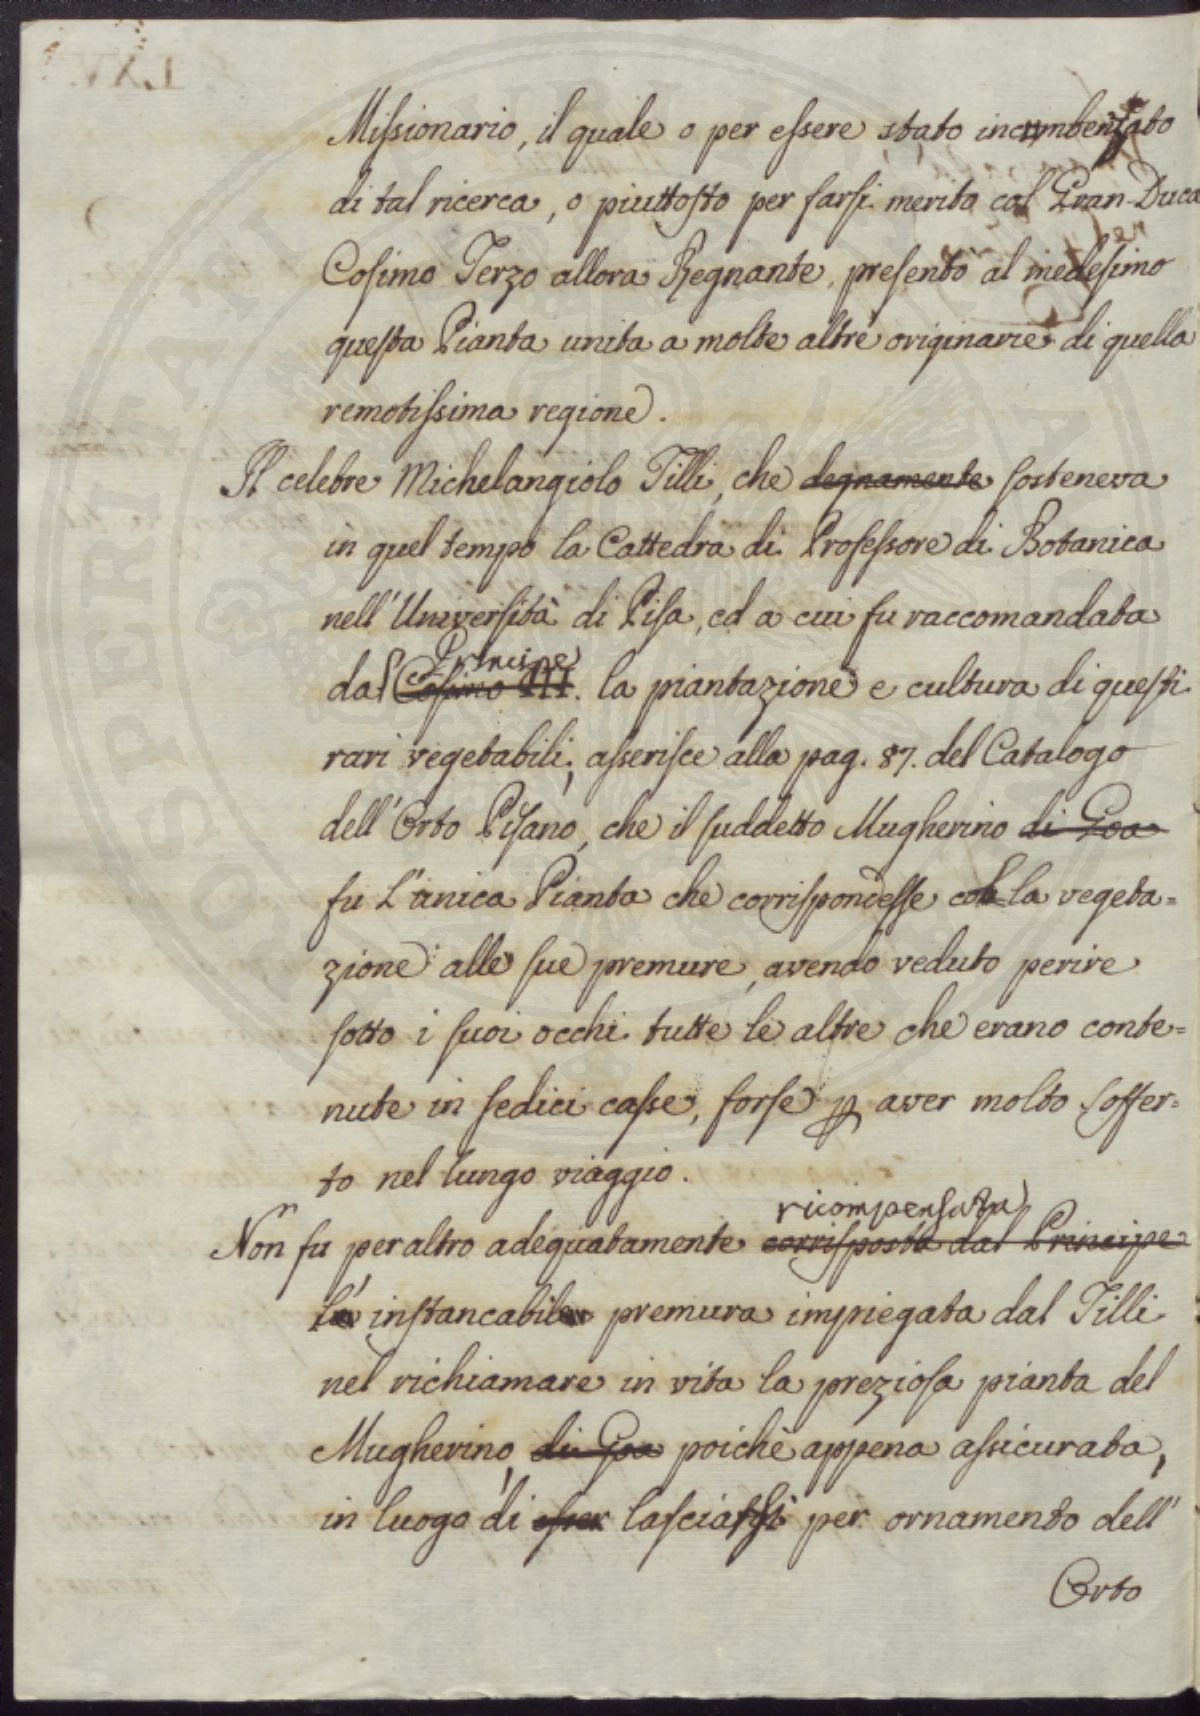 Missionario, il quale o per essere stato incumbenzato
di tal ricerca, o piuttosto per farsi merito col Gran-Duca
Cosimo Terzo allora Regnante, presentò al medesimo
questa Pianta unita a molte altre originarie di quella
remotissima regione.
Il celebre Michelangiolo Tilli, che degnamente sosteneva
in quel tempo la Cattedra di Professore di Botanica
nell'Università di Pisa, ed a cui fu raccomandata
Principe
dal Cosimo III. la piantazione e cultura di questi
rari vegetabili, asserisce alla pag. 87. del Catalogo
dell'Orto Pisano, che il suddetto Mugherino di Goa
fu l'unica Pianta che corrispondesse colla vegeta=
zione alle sue premure, avendo veduto perire
sotto i suoi occhi tutte le altre che erano conte=
nute in sedici casse, forse p aver molto soffer=
to nel lungo viaggio.
ricompensata
Non fu peraltro adeguatamente corrisposta dal Principe
la instancabile premura impiegata dal Tilli
nel richiamare in vita la preziosa pianta del
Mugherino, di Goa poichè appena assicurata,
in luogo di esser lasciarsi per ornamento dell'
Orto